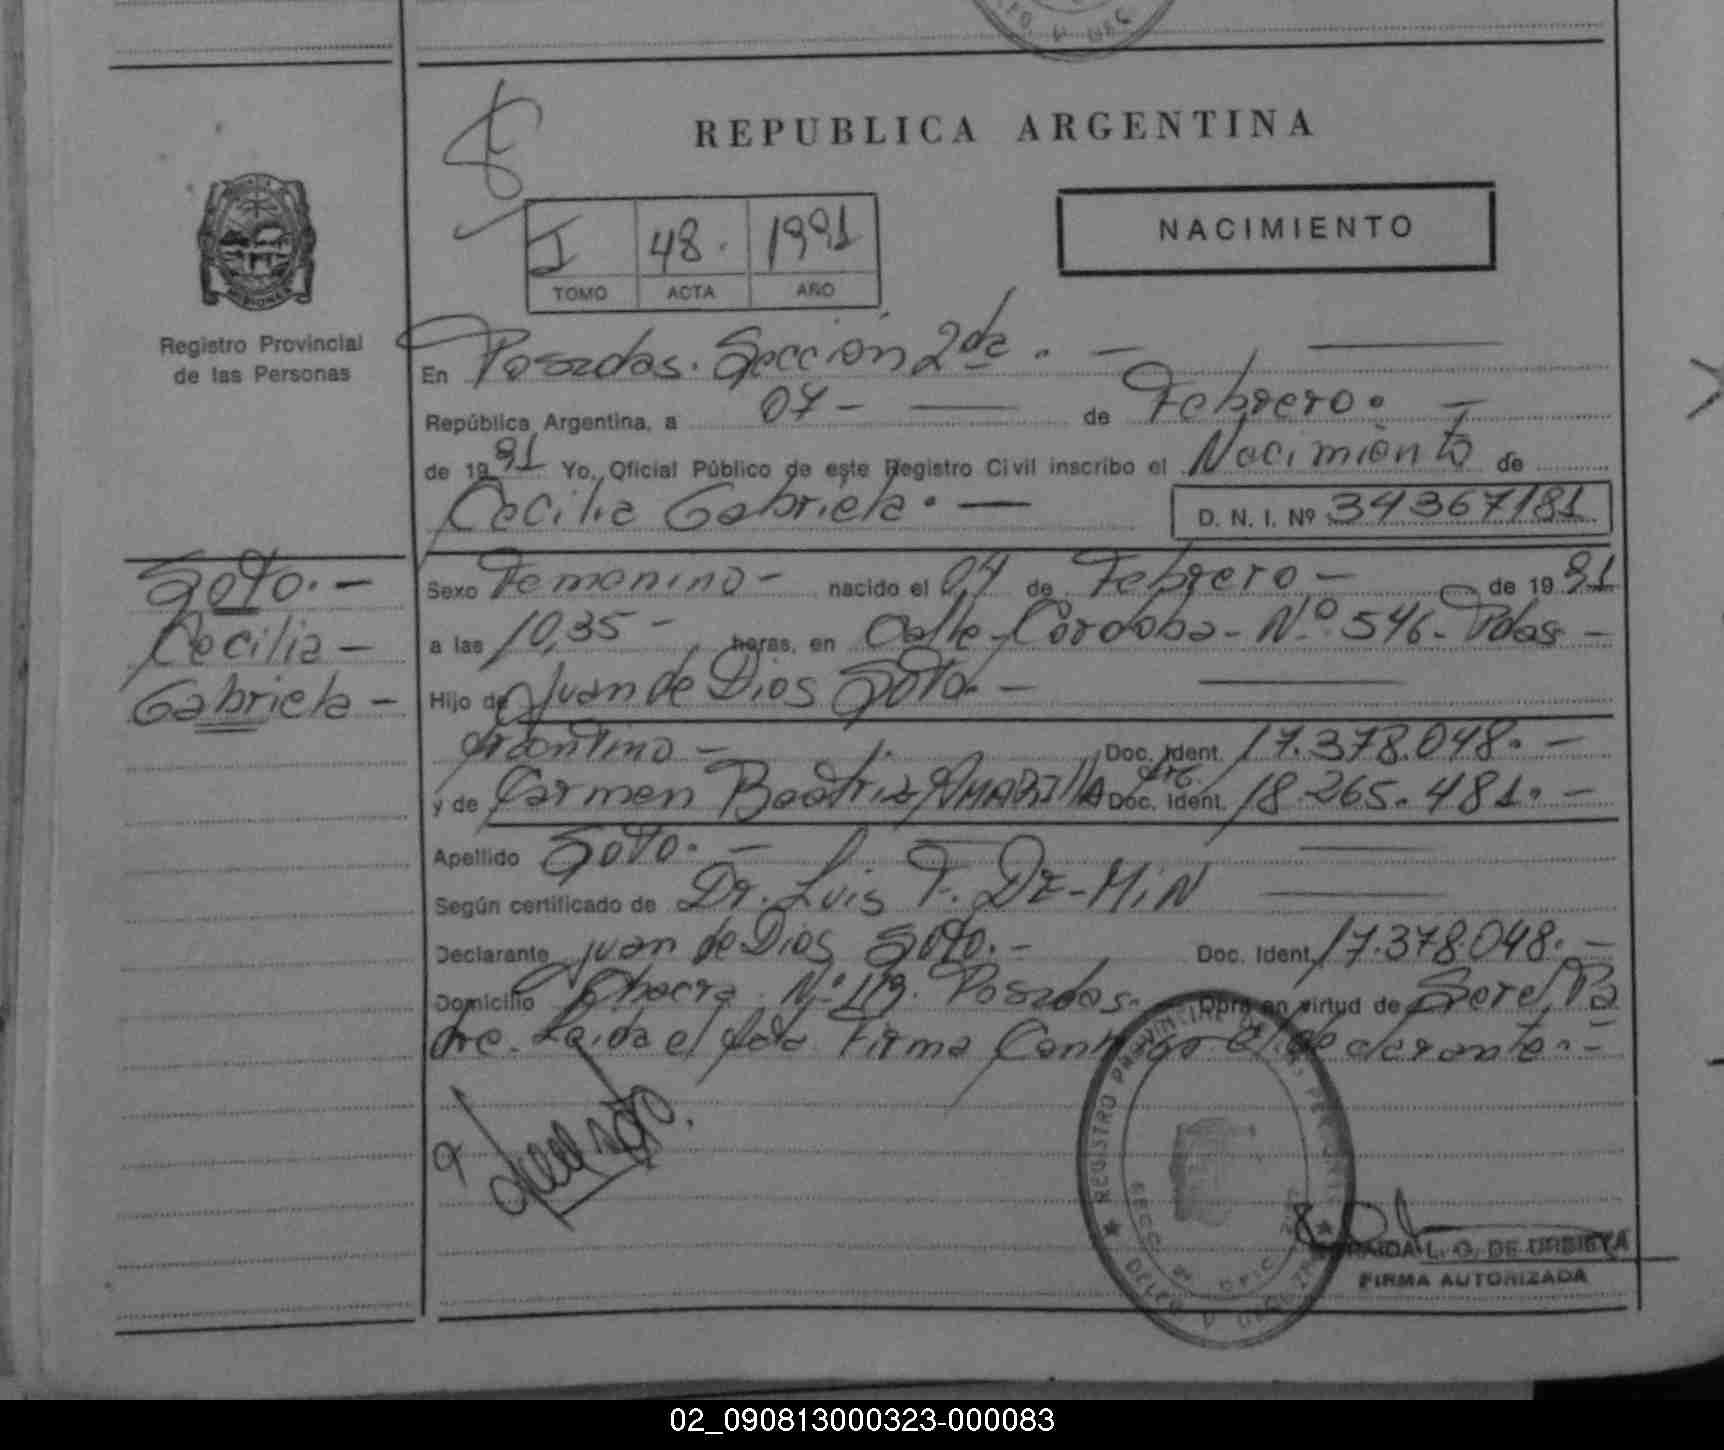 REPUBLICA ARGENTINA
NACIMIENTO
I 48. 1991
TOMO ACTA AÑO
Registro Provincial
de las Personas
En Posadas. Sección 2da. -
República Argentina, a 07 - de Febrero. -
de 1991 Yo, Oficial Público de este Registro Civil inscribo el Nacimiento de
Cecilia Gabriela. - D. N. I. Nº 34367181
Soto. -
Cecilia -
Gabriela -
Sexo Femenino - nacido el 04 de Febrero - de 1991
a las 10,35 - horas, en Calle Córdoba - Nº 546 - Pdas -
Hijo de Juan de Dios Soto. -
Argentino - Doc. Ident. 17.378.048. -
y de Carmen Beatriz AMARILLA Arg. Doc. Ident. 18.265.481. -
Apellido Soto. -
Según certificado de Dr. Luis F. DE-MIN
Declarante Juan de Dios Soto. - Doc. Ident. 17.378.048. -
Domicilio Chacra Nº 119. Posadas. - Obra en virtud de Ser el Pa
dre. Leida el Acta Firma Conmigo el declarante. -
REGISTRO PROVINCIAL DE LAS PERSONAS
L. G. DE URBIETA
FIRMA AUTORIZADA
02_090813000323-000083